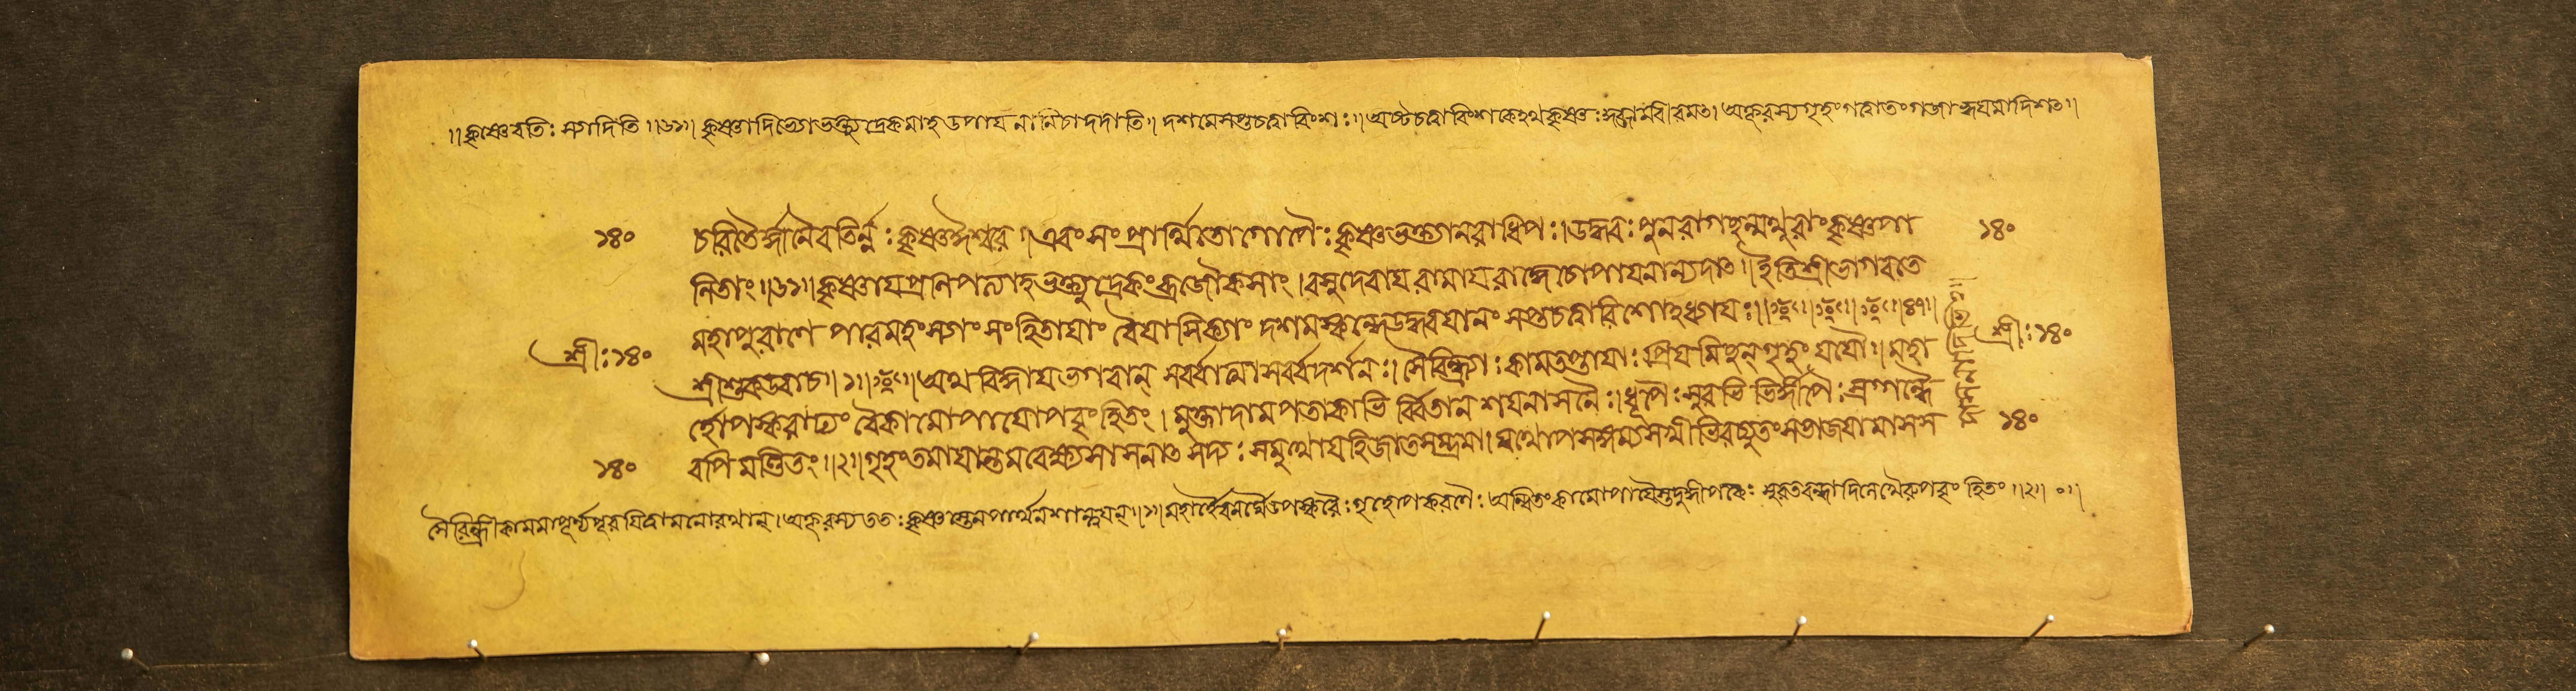 ॥কৃষ্ণেবতিঃ স্যাদিতি ॥৬৯॥ কৃষ্ণাদিভ্যো ভক্ত্যুদ্রেকমাহ উপায়নানিচাদদাতি॥ দশমেসপ্তচত্বারিংশঃ॥ অষ্টচত্বারিংশকেহথকৃষ্ণঃ অক্রূরস্যগৃহংগত্বাতংগজাহ্বয়মাদিশৎ॥
১৪০ চরিতৈর্দ্দানৈরতির্ন্নঃকৃষ্ণঈশ্বরে॥এবংসংপ্রার্থিতোগোপৈঃকৃষ্ণভক্ত্যানরাধিপঃ।উদ্ধবঃপুনরাগচ্ছন্মথুরাংকৃষ্ণপা ১৪০
লিতাং॥৬৯॥কৃষ্ণায়প্রনিপত্যাহভক্ত্যুদ্রেকংব্রজৌকসাং।বসুদেবায়রামায়রাজ্ঞেচোপায়নান্যদাৎ॥ইতিশ্রীভাগবতে
মহাপুরাণে পারমহংস্যাং সংহিতায়াং বৈয়াসিক্যাং দশমস্কন্ধেউদ্ধবযানং সপ্তচত্বারিংশোহধ্যায়ঃ॥ ॥৪৭॥
শ্রীঃ১৪০ শ্রীশুকউবাচ॥১॥ অথবিজ্ঞায়ভগবান্ সর্ব্বাত্মাসর্ব্বদর্শনঃ॥সৈরিন্ধ্র্যাঃকামতপ্তায়াঃপ্রিয়মিচ্ছন্গৃহংযযৌ॥মহা শ্রীঃ১৪০
র্হোপস্করাঢ্যং বৈকামোপায়োপবৃংহিতং।মুক্তাদামপতাকাভি র্ব্বিতানশয়নাসনৈঃ।ধূপৈঃসুরভিভির্দ্দীপৈঃস্রগ্গন্ধৈ
১৪০ রপি মণ্ডিতং॥২॥গৃহংতমায়ান্তমবেক্ষ্যসাসনাৎ সদ্যঃসমুত্থায়হিজাতসম্ভ্রমা।যথোপসঙ্গম্যসখীভিরচ্যুতংসভাজয়ামাসস ১৪০
সৈরিন্ধ্রীকামমাপূর্য্যপূরয়িত্বামনোরথান্।অক্রূরস্যততঃকৃষ্ণস্তেনপার্থানশান্ত্বয়ৎ॥১॥মহার্হৈর্বহুমূল্যৈরুপস্করৈঃগৃহোপকরণৈঃঅন্বিতংকামোপায়ৈস্তদুদ্দীপকৈঃ সুরতবন্ধাদিলেখ্যৈরুপবৃংহিতং॥২॥০॥